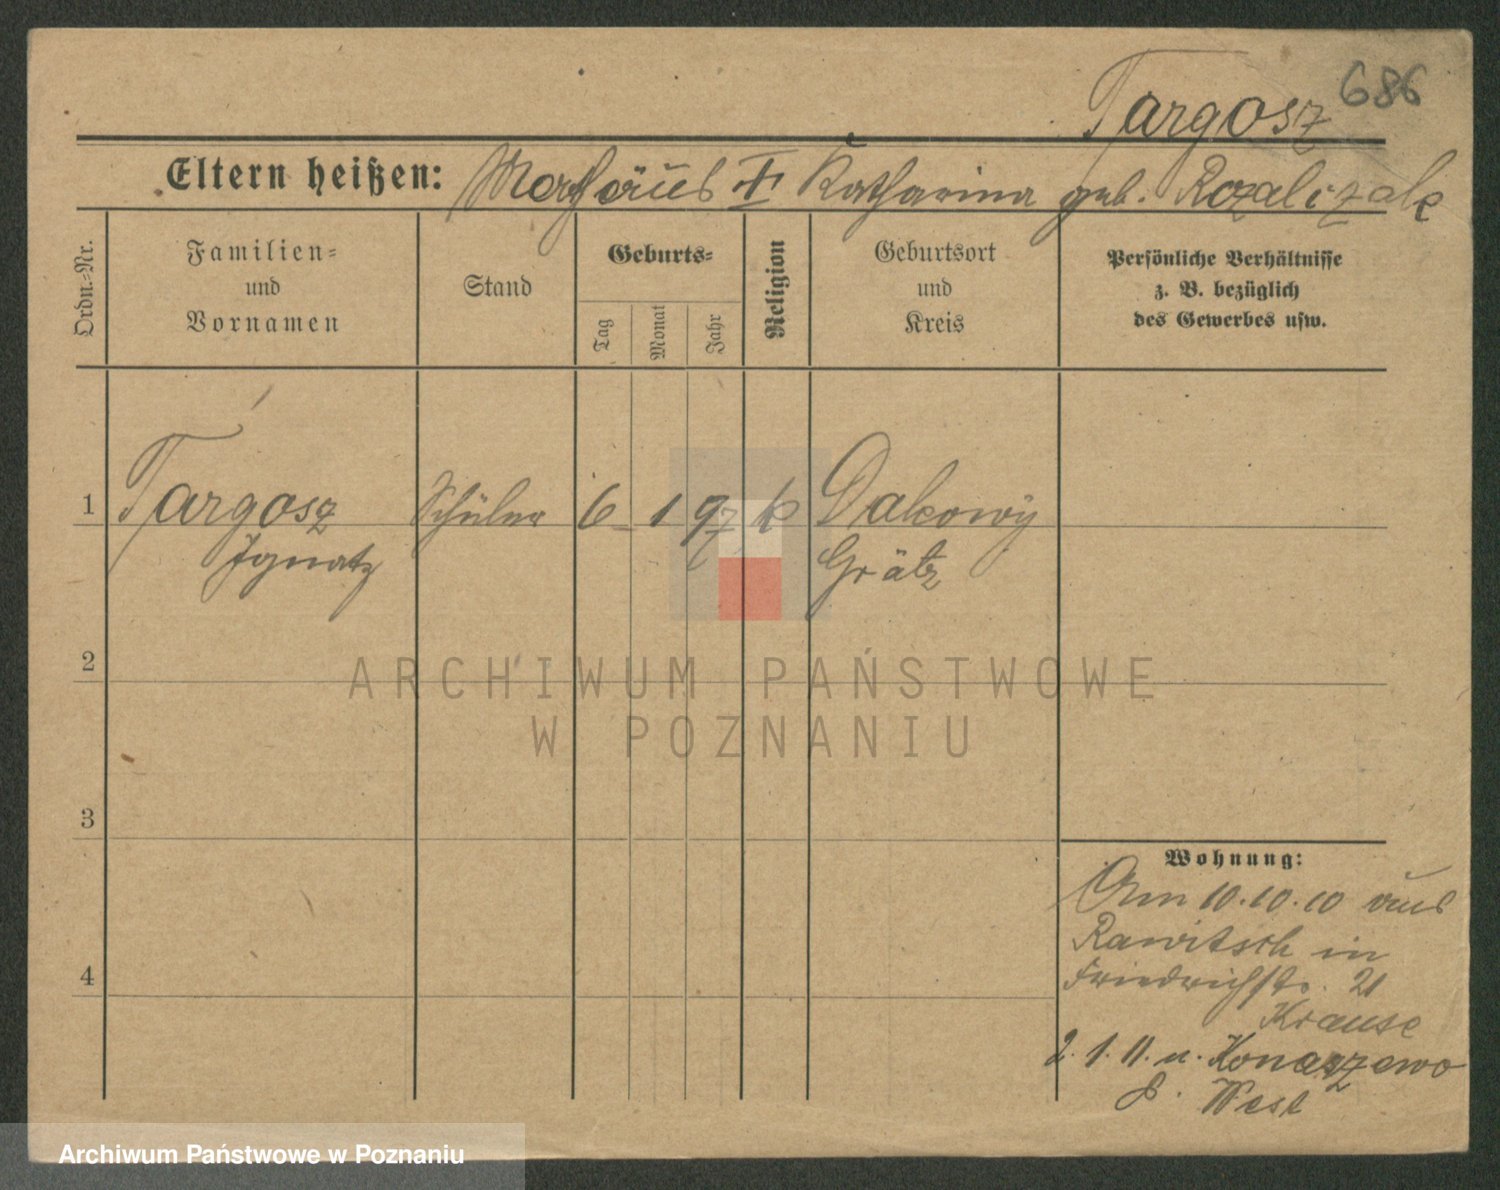 Targosz 686
Eltern heißen: Mathäus † Katharina geb. Rozalczak
Ordn.-Nr.
Familien-
und
Vornamen
Stand
Geburts-
Tag
Monat
Jahr
Religion
Geburtsort
und
Kreis
Persönliche Verhältnisse
z. B. bezüglich
des Gewerbes usw.
1 Targosz Schüler 6 1 97 k Dakowÿ
Ignatz Grätz
2
3
4
Wohnung:
Am 10.10.10 aus
Rawitsch in
Friedrichstr. 21
Krause
2.1.11. n. Konarzewo
P. West
ARCHIWUM PAŃSTWOWE
W POZNANIU
Archiwum Państwowe w Poznaniu